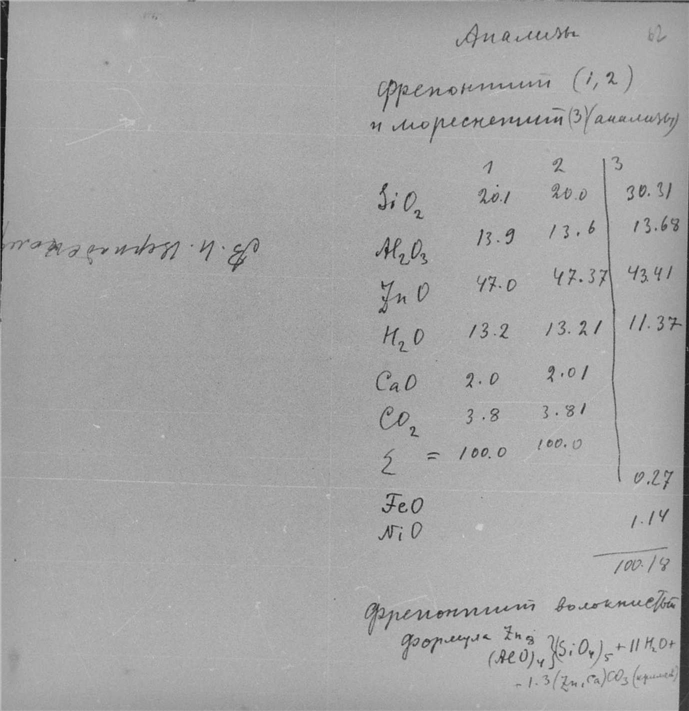 Анализы 62
Фрепонтит (1, 2)
и мореснетит (3) (анализы)
1 2 3
SiO2 20.1 20.0 30.31
Al2O3 13.9 13.6 13.68
ZnO 47.0 47.37 43.41
H2O 13.2 13.21 11.37
CaO 2.0 2.01
CO2 3.8 3.81
Σ = 100.0 100.0
0.27
FeO
NiO 1.14
100.18
Фрепонтит волокнистый
формула Zn8
(AlO)4}(SiO4)5 + 11H2O +
- 1.3 (Zn, Ca)CO3
В. И. Вернадскому